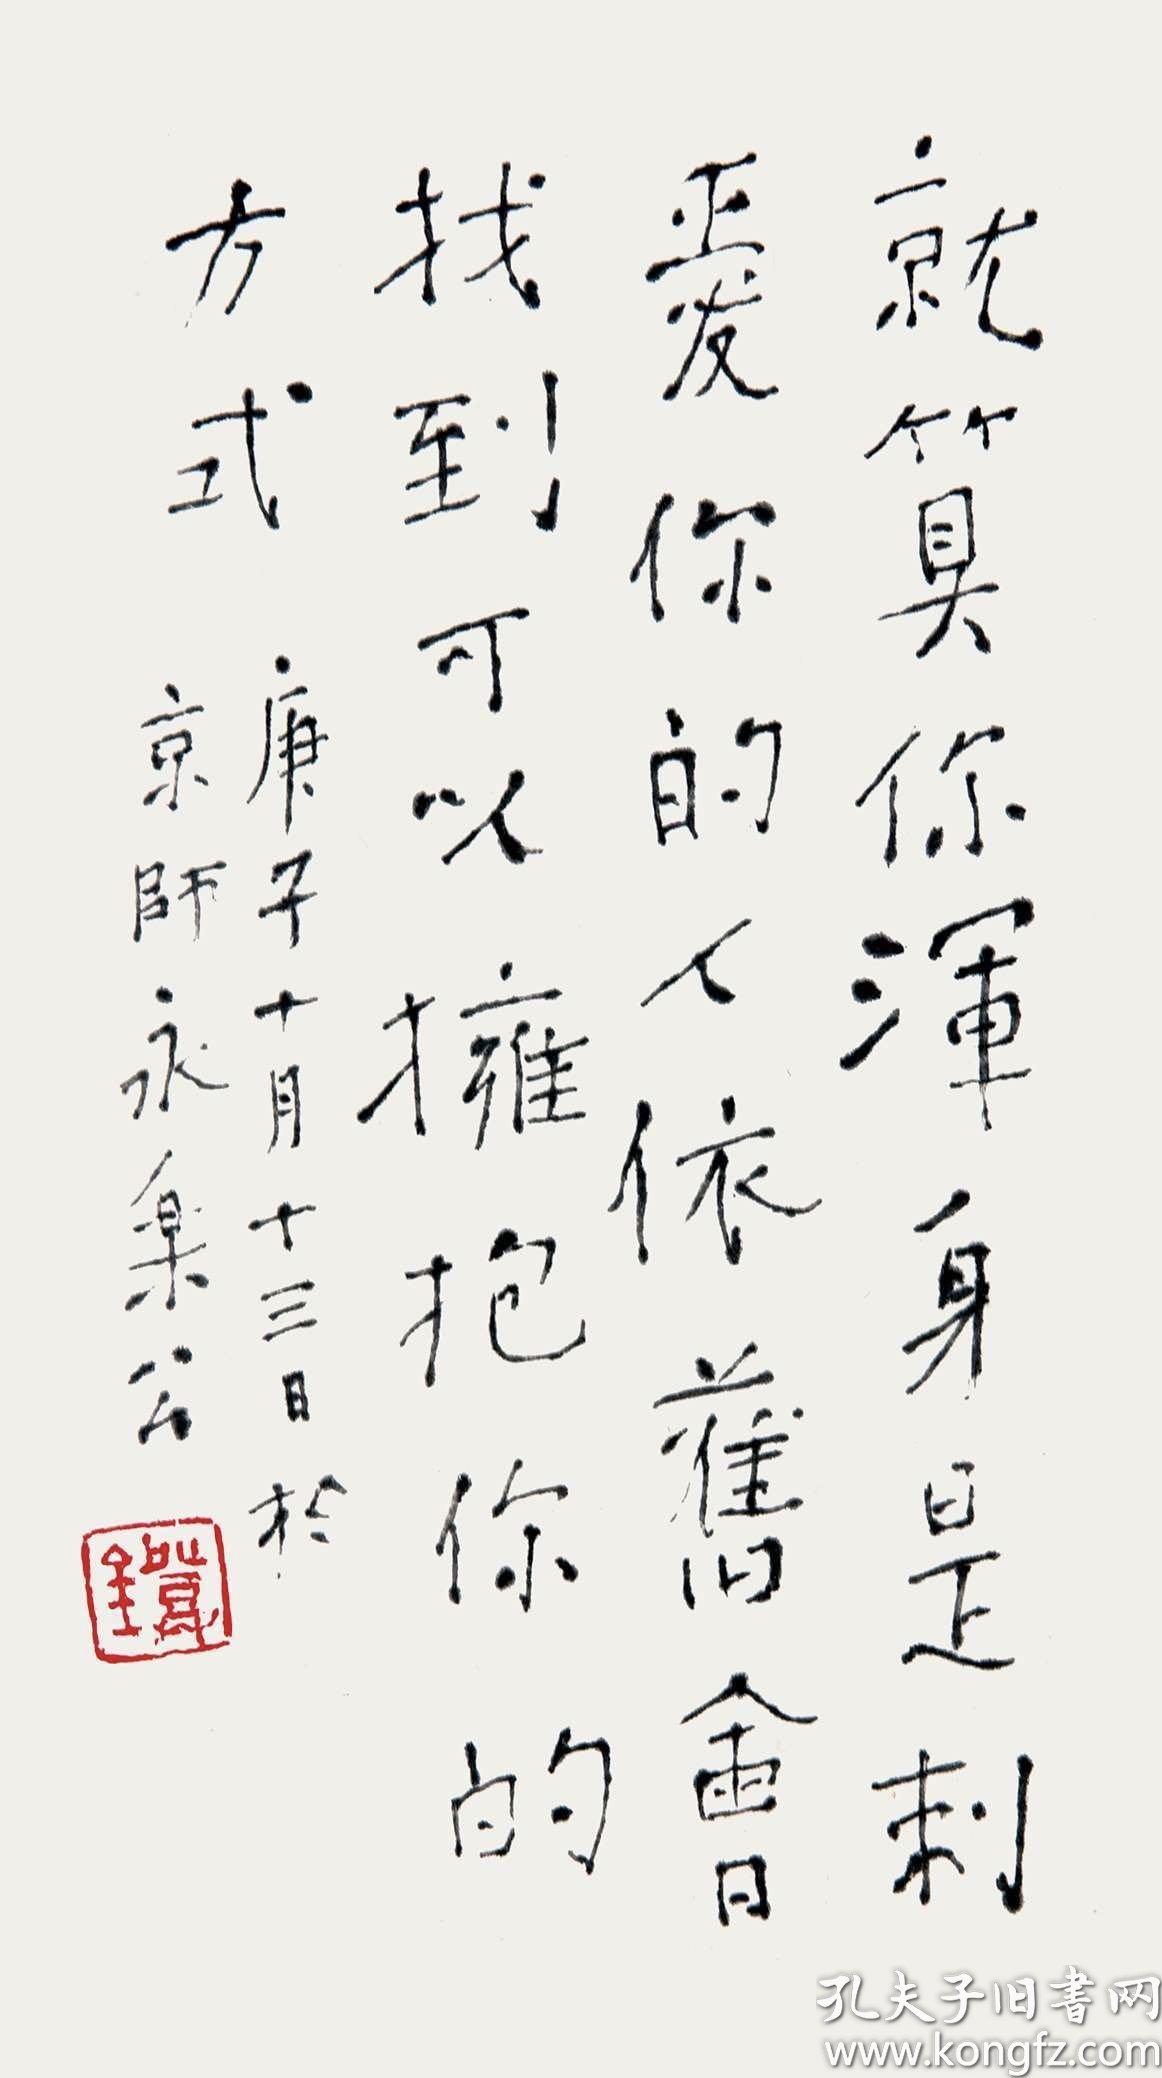 就算你渾身是刺
愛你的人依舊會
找到可以擁抱你的
方式
庚子十月十三日於
京師永樂公
孔夫子旧書网
www.kongfz.com